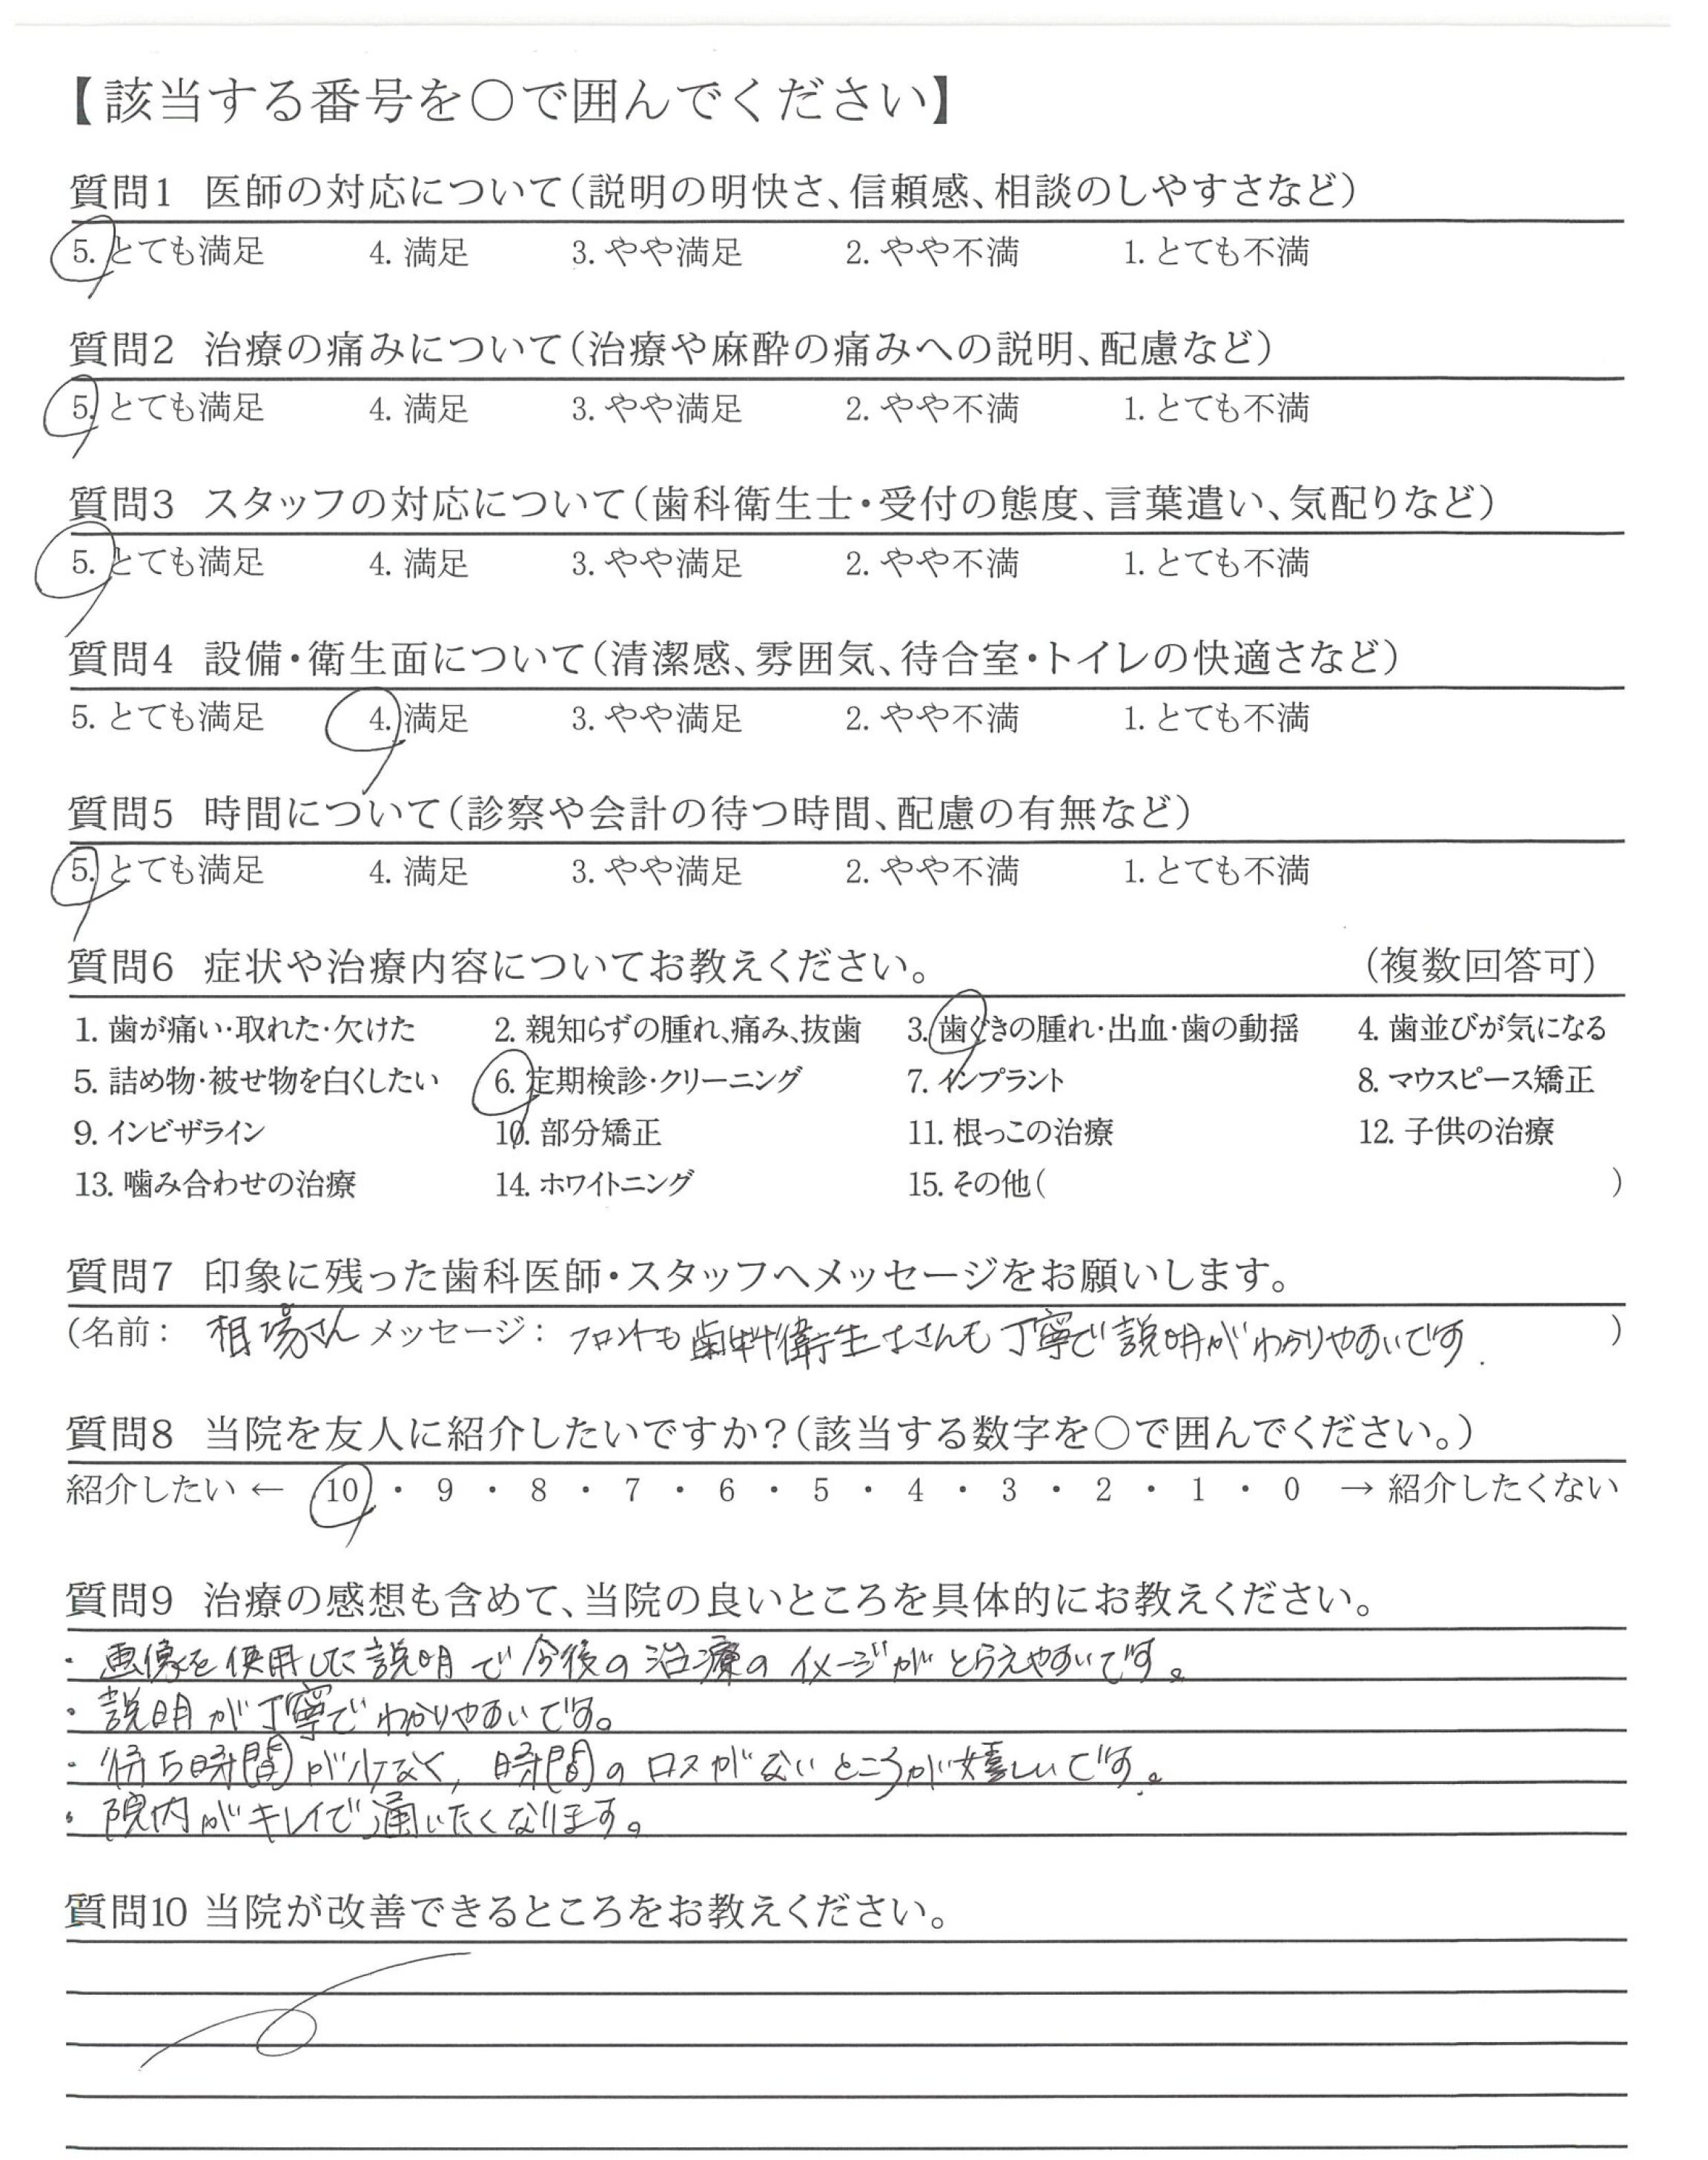 【該当する番号を○で囲んでください】
質問1 医師の対応について(説明の明快さ、信頼感、相談のしやすさなど)
5. とても満足 4. 満足 3. やや満足 2. やや不満 1. とても不満
質問2 治療の痛みについて(治療や麻酔の痛みへの説明、配慮など)
5. とても満足 4. 満足 3. やや満足 2. やや不満 1. とても不満
質問3 スタッフの対応について(歯科衛生士・受付の態度、言葉遣い、気配りなど)
5. とても満足 4. 満足 3. やや満足 2. やや不満 1. とても不満
質問4 設備・衛生面について(清潔感、雰囲気、待合室・トイレの快適さなど)
5. とても満足 4. 満足 3. やや満足 2. やや不満 1. とても不満
質問5 時間について(診察や会計の待つ時間、配慮の有無など)
5. とても満足 4. 満足 3. やや満足 2. やや不満 1. とても不満
質問6 症状や治療内容についてお教えください。 (複数回答可)
1. 歯が痛い・取れた・欠けた 2. 親知らずの腫れ、痛み、抜歯 3. 歯ぐきの腫れ・出血・歯の動揺 4. 歯並びが気になる
5. 詰め物・被せ物を白くしたい 6. 定期検診・クリーニング 7. インプラント 8. マウスピース矯正
9. インビザライン 10. 部分矯正 11. 根っこの治療 12. 子供の治療
13. 噛み合わせの治療 14. ホワイトニング 15. その他( )
質問7 印象に残った歯科医師・スタッフへメッセージをお願いします。
(名前: 相場さん メッセージ: フロントも歯科衛生士さんも丁寧で説明がわかりやすいです. )
質問8 当院を友人に紹介したいですか?(該当する数字を○で囲んでください。)
紹介したい ← 10 ・ 9 ・ 8 ・ 7 ・ 6 ・ 5 ・ 4 ・ 3 ・ 2 ・ 1 ・ 0 → 紹介したくない
質問9 治療の感想も含めて、当院の良いところを具体的にお教えください。
・画像を使用した説明で今後の治療のイメージがとらえやすいです。
・説明が丁寧でわかりやすいです。
・待ち時間が少なく, 時間のロスがないところが嬉しいです。
・院内がキレイで通いたくなります。
質問10 当院が改善できるところをお教えください。